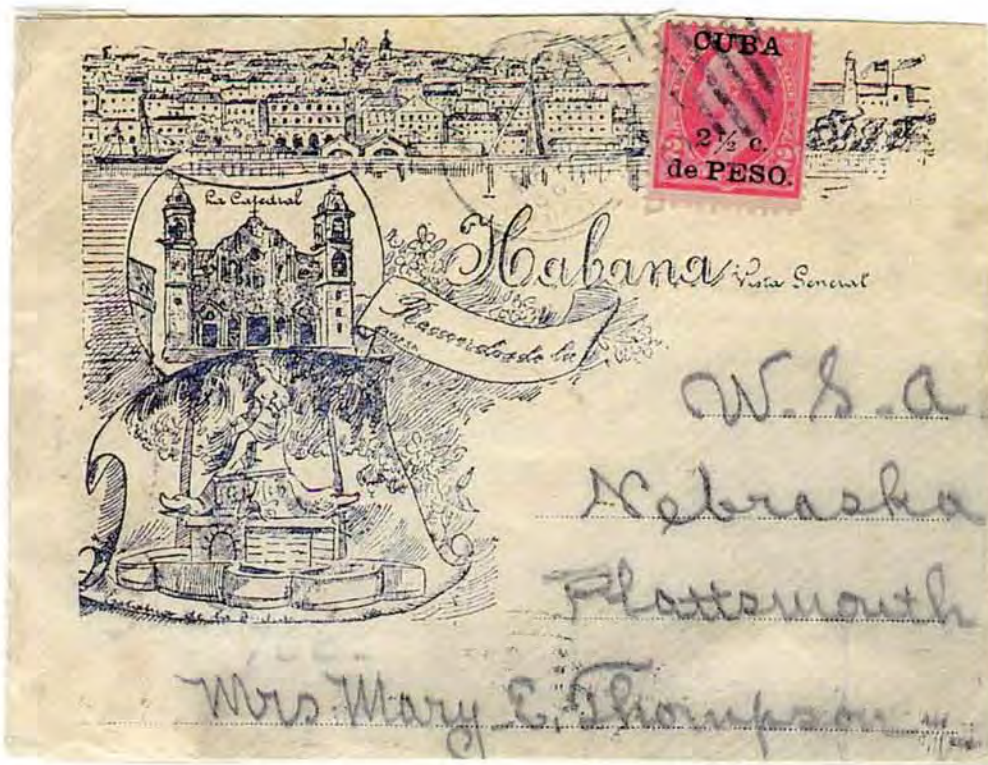 CUBA
2½ c.
de PESO.
2 2
La Catedral
Habana Vista General
de la
U.S.A.
Nebraska
Plattsmouth
Mrs. Mary E. Thompson